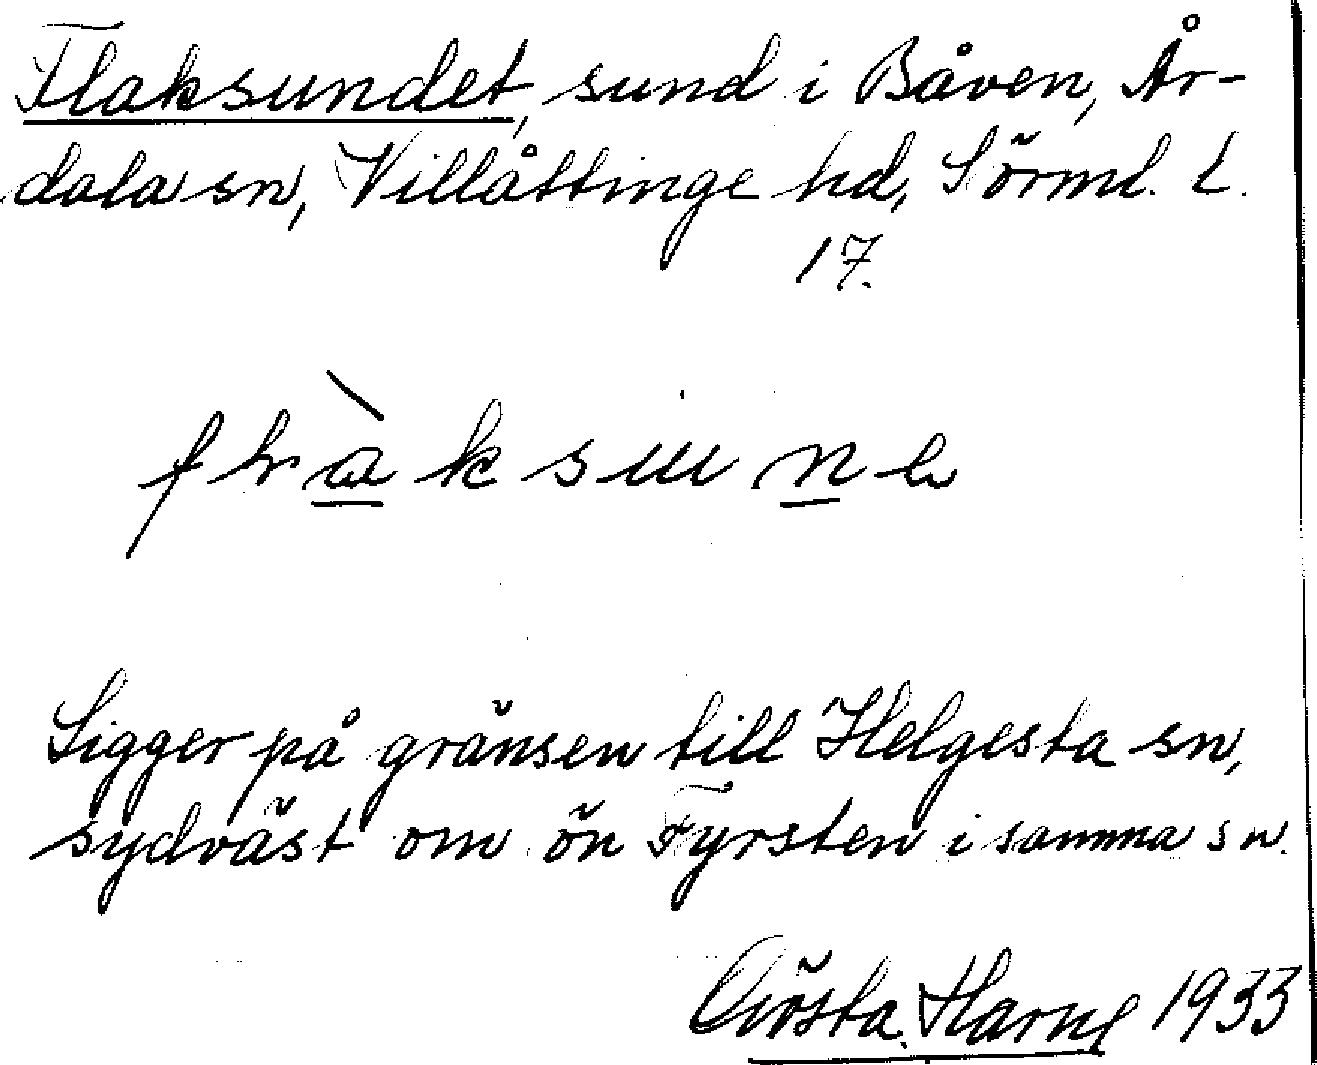 Flaksundet, sund i Båven, År-
dala sn, Villåttinge hd, Sörml. L.
17.
Ligger på gränsen till Helgesta sn,
sydväst om ön Fyrsten i samma sn.
Gösta Harne 1933